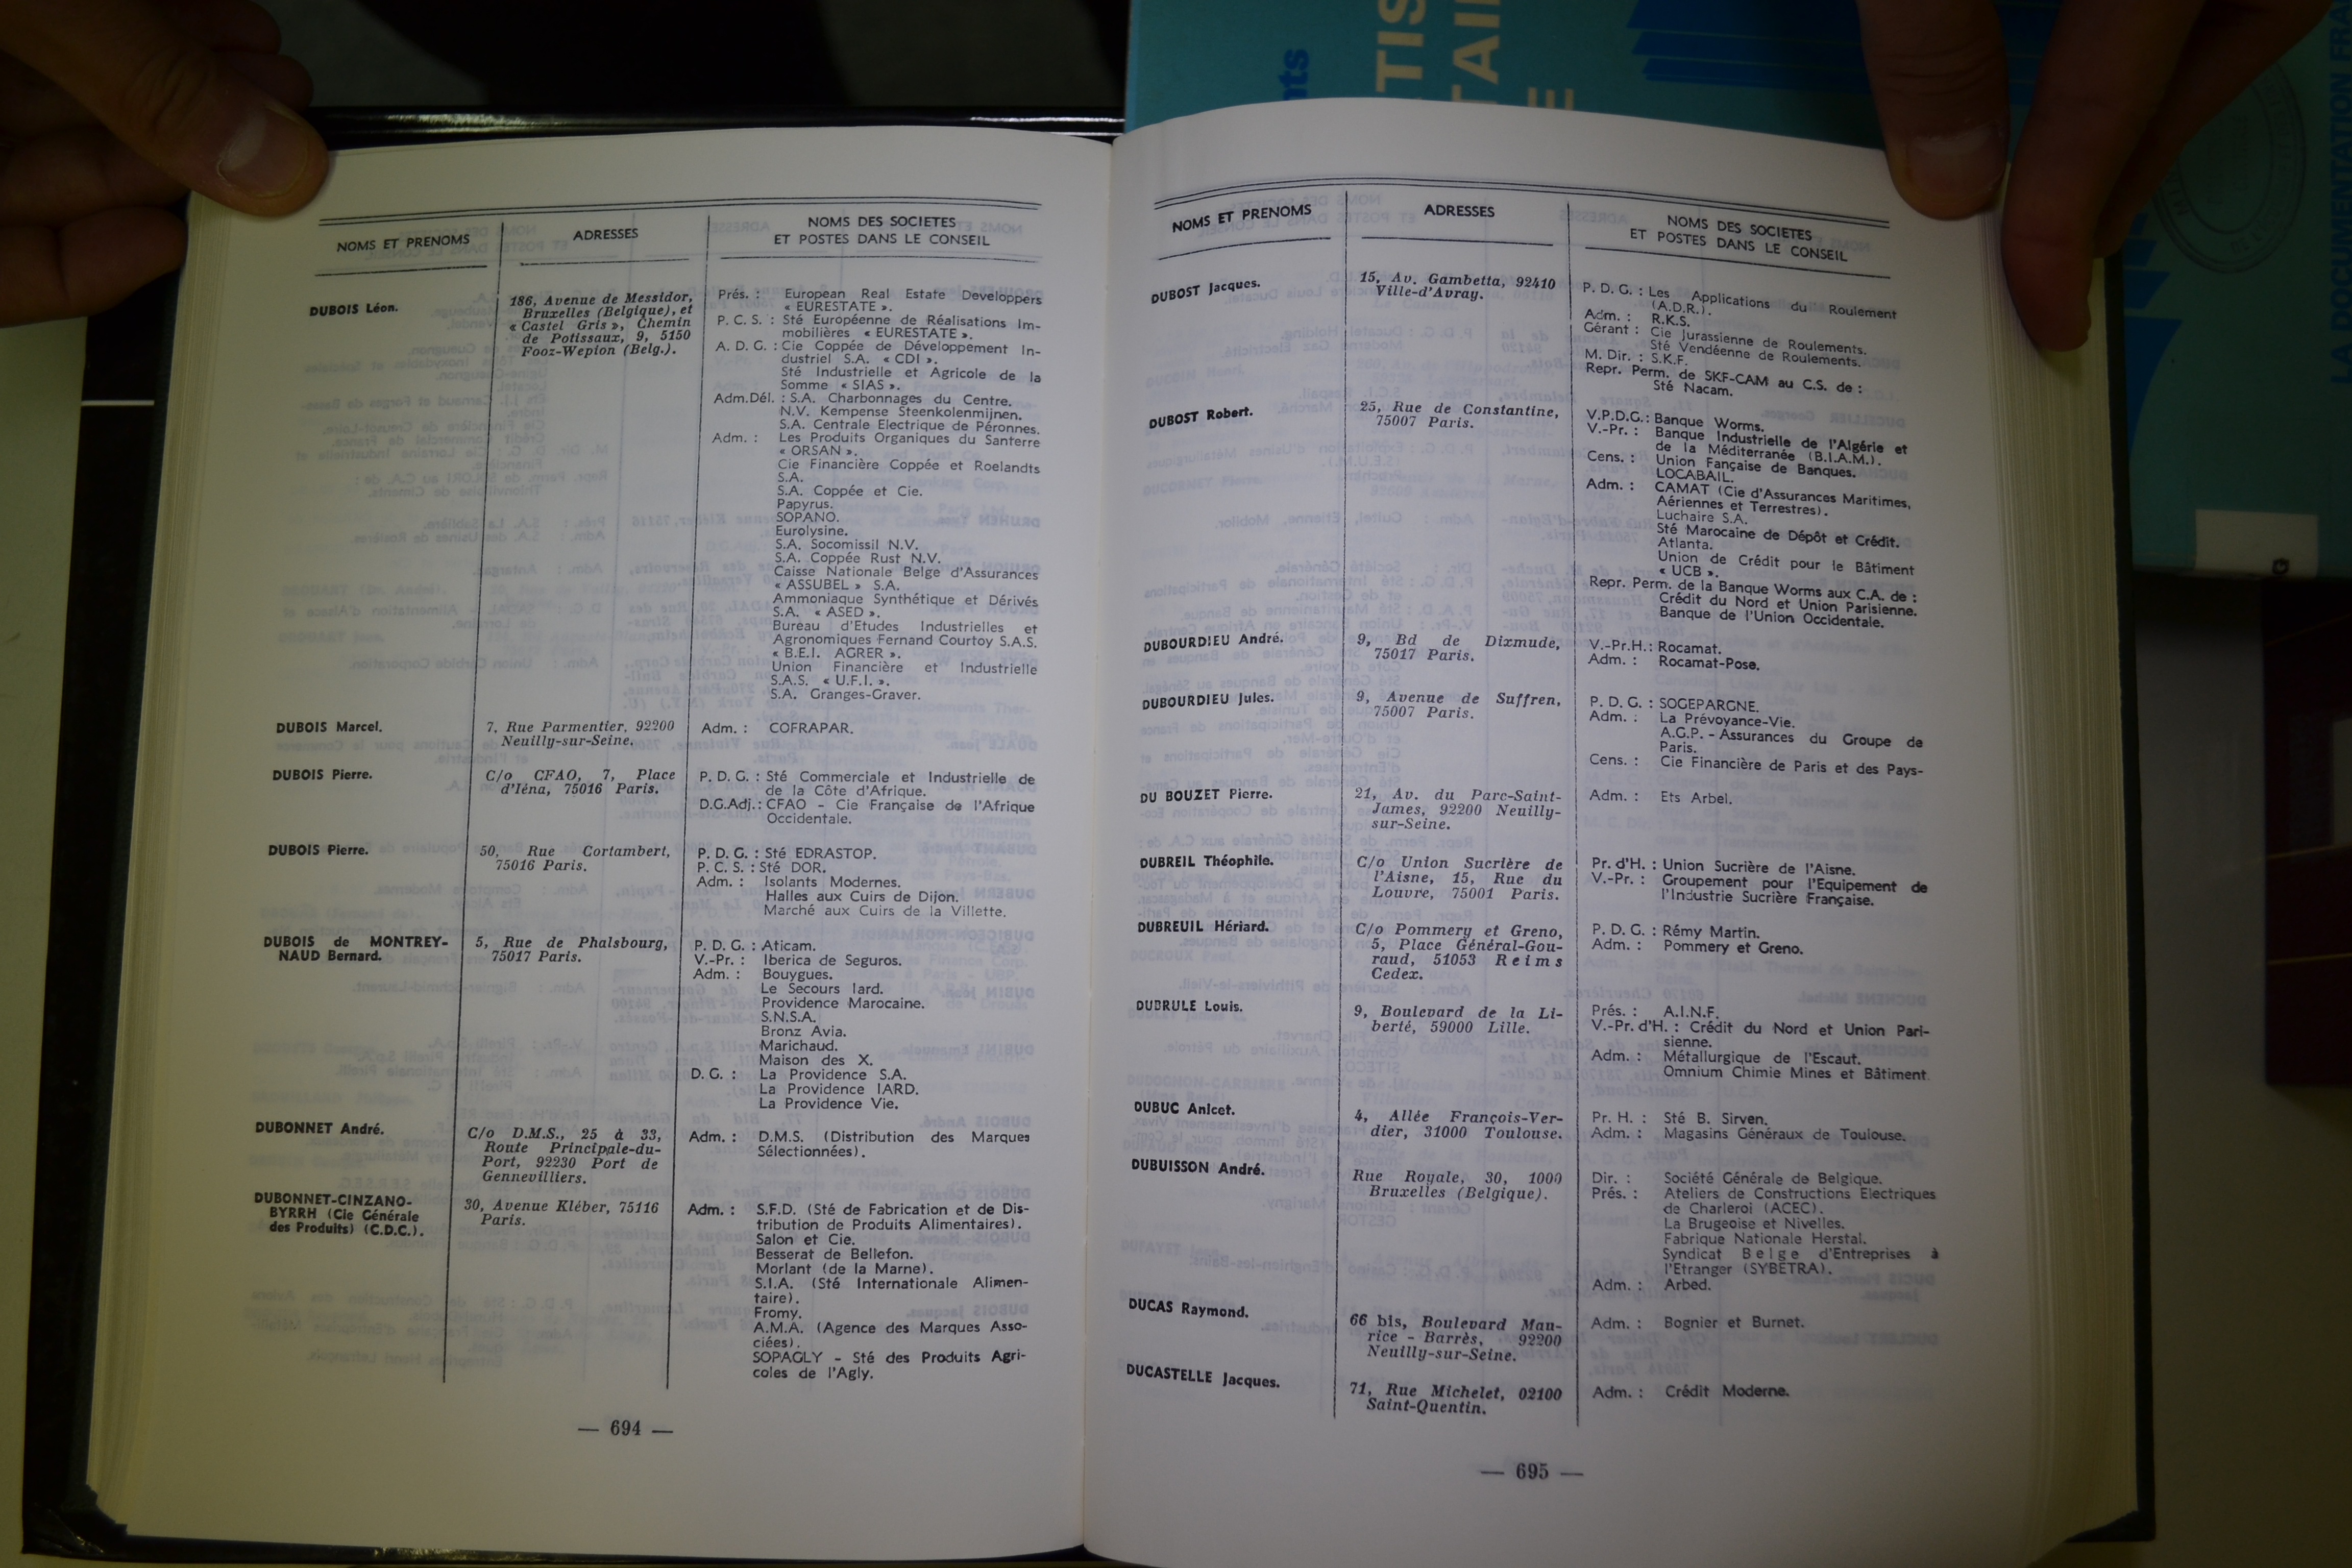 NOMS ET PRENOMS
ADRESSES
NOMS DES SOCIETES
ET POSTES DANS LE CONSEIL
DUBOIS Léon.
186, Avenue de Messidor,
Bruxelles (Belgique), et
« Castel Gris », Chemin
de Potissaux, 9, 5150
Fooz-Wepion (Belg.).
Prés. : European Real Estate Developpers
« EURESTATE ».
P. C. S. : Sté Européenne de Réalisations Im-
mobilières « EURESTATE ».
A. D. G. : Cie Coppée de Développement In-
dustriel S.A. « CDI ».
Sté Industrielle et Agricole de la
Somme « SIAS ».
Adm.Dél. : S.A. Charbonnages du Centre.
N.V. Kempense Steenkolenmijnen.
S.A. Centrale Electrique de Péronnes.
Adm. : Les Produits Organiques du Santerre
« ORSAN ».
Cie Financière Coppée et Roelandts
S.A.
S.A. Coppée et Cie.
Papyrus.
SOPANO.
Eurolysine.
S.A. Socomissil N.V.
S.A. Coppée Rust N.V.
Caisse Nationale Belge d'Assurances
« ASSUBEL » S.A.
Ammoniaque Synthétique et Dérivés
S.A. « ASED ».
Bureau d'Etudes Industrielles et
Agronomiques Fernand Courtoy S.A.S.
« B.E.I. AGRER ».
Union Financière et Industrielle
S.A.S. « U.F.I. ».
S.A. Granges-Graver.
DUBOIS Marcel.
7, Rue Parmentier, 92200
Neuilly-sur-Seine.
Adm. : COFRAPAR.
DUBOIS Pierre.
C/o CFAO, 7, Place
d'Iéna, 75016 Paris.
P. D. G. : Sté Commerciale et Industrielle de
de la Côte d'Afrique.
D.G.Adj.: CFAO - Cie Française de l'Afrique
Occidentale.
DUBOIS Pierre.
50, Rue Cortambert,
75016 Paris.
P. D. G. : Sté EDRASTOP.
P. C. S. : Sté DOR.
Adm. : Isolants Modernes.
Halles aux Cuirs de Dijon.
Marché aux Cuirs de la Villette.
DUBOIS de MONTREY-
NAUD Bernard.
5, Rue de Phalsbourg,
75017 Paris.
P. D. G. : Aticam.
V.-Pr. : Iberica de Seguros.
Adm. : Bouygues.
Le Secours Iard.
Providence Marocaine.
S.N.S.A.
Bronz Avia.
Marichaud.
Maison des X.
D. G. : La Providence S.A.
La Providence IARD.
La Providence Vie.
DUBONNET André.
C/o D.M.S., 25 à 33,
Route Principale-du-
Port, 92230 Port de
Gennevilliers.
Adm. : D.M.S. (Distribution des Marques
Sélectionnées).
DUBONNET-CINZANO-
BYRRH (Cie Générale
des Produits) (C.D.C.).
30, Avenue Kléber, 75116
Paris.
Adm. : S.F.D. (Sté de Fabrication et de Dis-
tribution de Produits Alimentaires).
Salon et Cie.
Besserat de Bellefon.
Morlant (de la Marne).
S.I.A. (Sté Internationale Alimen-
taire).
Fromy.
A.M.A. (Agence des Marques Asso-
ciées).
SOPAGLY - Sté des Produits Agri-
coles de l'Agly.
— 694 —
NOMS ET PRENOMS
ADRESSES
NOMS DES SOCIETES
ET POSTES DANS LE CONSEIL
DUBOST Jacques.
15, Av. Gambetta, 92410
Ville-d'Avray.
P. D. G. : Les Applications du Roulement
(A.D.R.).
Adm. : R.K.S.
Gérant : Cie Jurassienne de Roulements.
Sté Vendéenne de Roulements.
M. Dir. : S.K.F.
Repr. Perm. de SKF-CAM au C.S. de :
Sté Nacam.
DUBOST Robert.
25, Rue de Constantine,
75007 Paris.
V.P.D.G.: Banque Worms.
V.-Pr. : Banque Industrielle de l'Algérie et
de la Méditerranée (B.I.A.M.).
Cens. : Union Fançaise de Banques.
LOCABAIL.
Adm. : CAMAT (Cie d'Assurances Maritimes,
Aériennes et Terrestres).
Luchaire S.A.
Sté Marocaine de Dépôt et Crédit.
Atlanta.
Union de Crédit pour le Bâtiment
« UCB ».
Repr. Perm. de la Banque Worms aux C.A. de :
Crédit du Nord et Union Parisienne.
Banque de l'Union Occidentale.
DUBOURDIEU André.
9, Bd de Dixmude,
75017 Paris.
V.-Pr.H.: Rocamat.
Adm. : Rocamat-Pose.
DUBOURDIEU Jules.
9, Avenue de Suffren,
75007 Paris.
P. D. G. : SOGEPARGNE.
Adm. : La Prévoyance-Vie.
A.G.P. - Assurances du Groupe de
Paris.
Cens. : Cie Financière de Paris et des Pays-
DU BOUZET Pierre.
21, Av. du Parc-Saint-
James, 92200 Neuilly-
sur-Seine.
Adm. : Ets Arbel.
DUBREIL Théophile.
C/o Union Sucrière de
l'Aisne, 15, Rue du
Louvre, 75001 Paris.
Pr. d'H. : Union Sucrière de l'Aisne.
V.-Pr. : Groupement pour l'Equipement de
l'Industrie Sucrière Française.
DUBREUIL Hériard.
C/o Pommery et Greno,
5, Place Général-Gou-
raud, 51053 Reims
Cedex.
P. D. G. : Rémy Martin.
Adm. : Pommery et Greno.
DUBRULE Louis.
9, Boulevard de la Li-
berté, 59000 Lille.
Prés. : A.I.N.F.
V.-Pr. d'H. : Crédit du Nord et Union Pari-
sienne.
Adm. : Métallurgique de l'Escaut.
Omnium Chimie Mines et Bâtiment
DUBUC Anicet.
4, Allée François-Ver-
dier, 31000 Toulouse.
Pr. H. : Sté B. Sirven.
Adm. : Magasins Généraux de Toulouse.
DUBUISSON André.
Rue Royale, 30, 1000
Bruxelles (Belgique).
Dir. : Société Générale de Belgique.
Prés. : Ateliers de Constructions Electriques
de Charleroi (ACEC).
La Brugeoise et Nivelles.
Fabrique Nationale Herstal.
Syndicat Belge d'Entreprises à
l'Etranger (SYBETRA).
Adm. : Arbed.
DUCAS Raymond.
66 bis, Boulevard Mau-
rice - Barrès, 92200
Neuilly-sur-Seine.
Adm. : Bognier et Burnet.
DUCASTELLE Jacques.
71, Rue Michelet, 02100
Saint-Quentin.
Adm. : Crédit Moderne.
— 695 —